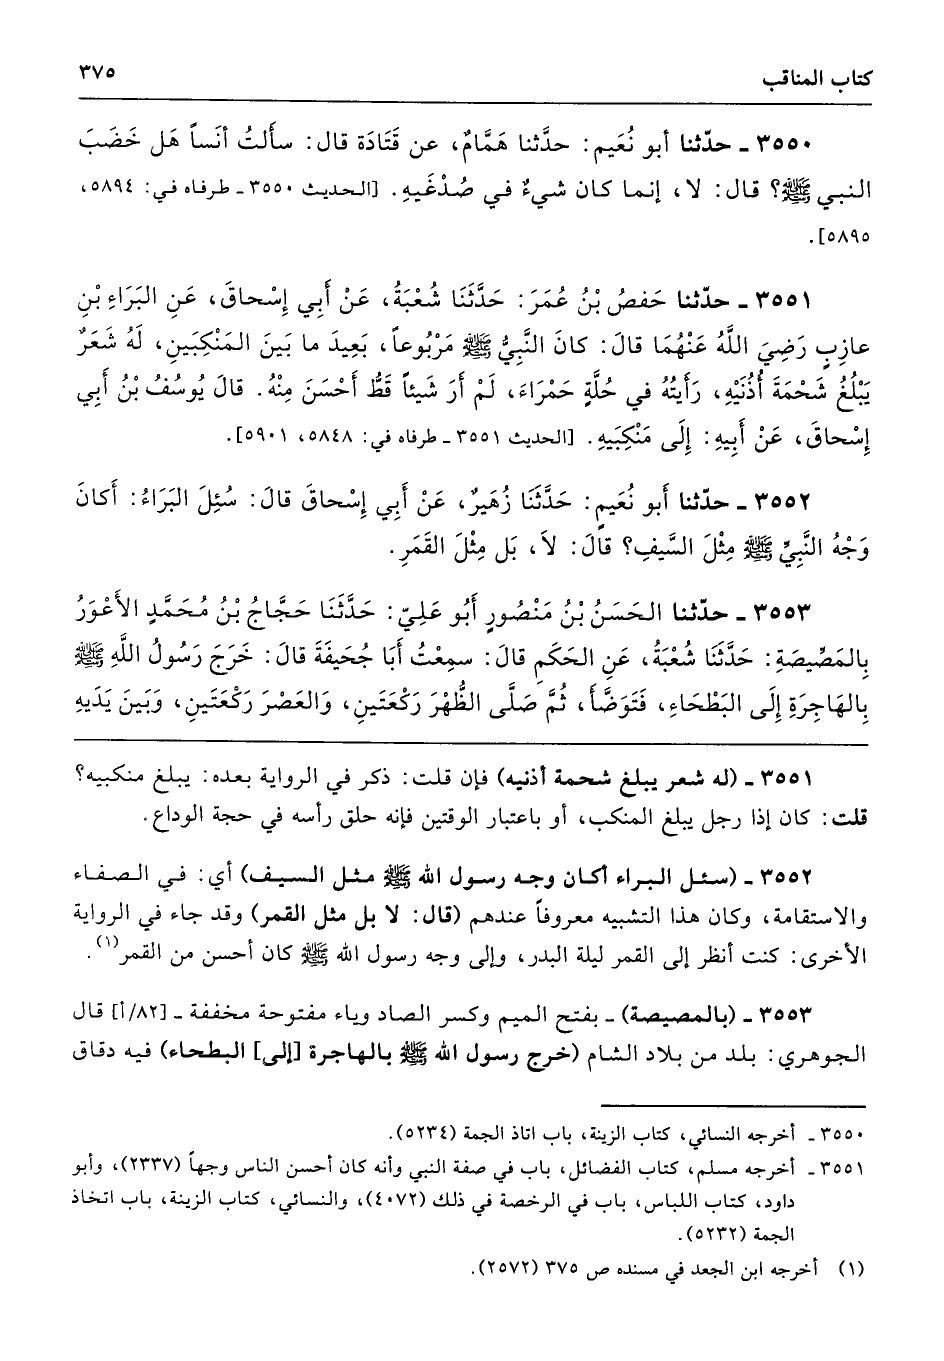 كتاب المناقب ٣٧٥
٣٥٥٠ ـ حدّثنا أبو نُعَيم: حدَّثنا هَمَّامٌ، عن قَتَادَة قال: سألتُ أنَساً هَل خَضَبَ
النبي ﷺ؟ قال: لا، إنما كان شيءٌ في صُدْغَيهِ. [الحديث ٣٥٥٠ ـ طرفاه في: ٥٨٩٤،
٥٨٩٥].
٣٥٥١ ـ حدّثنا حَفصُ بْنُ عُمَرَ: حَدَّثَنَا شُعْبَةُ، عَنْ أَبِي إِسْحاقَ، عَنِ البَرَاءِ بْنِ
عازِبٍ رَضِيَ اللَّهُ عَنْهُمَا قالَ: كانَ النَّبِيُّ ﷺ مَرْبُوعاً، بَعِيدَ ما بَينَ المَنْكِبَينِ، لَهُ شَعَرٌ
يَبْلُغُ شَحْمَةَ أُذُنَيْهِ، رَأَيتُهُ في حُلَّةٍ حَمْرَاءَ، لَمْ أَرَ شَيئاً قَطُّ أَحْسَنَ مِنْهُ. قالَ يُوسُفُ بْنُ أَبِي
إِسْحاقَ، عَنْ أَبِيهِ: إِلَى مَنْكِبَيهِ. [الحديث ٣٥٥١ ـ طرفاه في: ٥٨٤٨، ٥٩٠١].
٣٥٥٢ ـ حدّثنا أَبو نُعَيمٍ: حَدَّثَنَا زُهَيرٌ، عَنْ أَبِي إِسْحاقَ قالَ: سُئِلَ البَرَاءُ: أَكانَ
وَجْهُ النَّبِيِّ ﷺ مِثْلَ السَّيفِ؟ قالَ: لاَ، بَل مِثْلَ القَمَرِ.
٣٥٥٣ ـ حدّثنا الحَسَنُ بْنُ مَنْصُورٍ أَبُو عَلِيّ: حَدَّثَنَا حَجَّاجُ بْنُ مُحَمَّدٍ الأَعْوَرُ
بِالمَصِّيصَةِ: حَدَّثَنَا شُعْبَةُ، عَنِ الحَكَمِ قالَ: سمِعْتُ أَبَا جُحَيفَةَ قالَ: خَرَجَ رَسُولُ اللَّهِ ﷺ
بِالهَاجِرَةِ إِلَى البَطْحَاءِ، فَتَوَضَّأَ، ثُمَّ صَلَّى الظُّهْرَ رَكْعَتَينِ، وَالعَصْرَ رَكْعَتَينِ، وَبَينَ يَدَيهِ
٣٥٥١ ـ (له شعر يبلغ شحمة أذنيه) فإن قلت: ذكر في الرواية بعده: يبلغ منكبيه؟
قلت: كان إذا رجل يبلغ المنكب، أو باعتبار الوقتين فإنه حلق رأسه في حجة الوداع.
٣٥٥٢ ـ (سئل البراء أكان وجه رسول الله ﷺ مثل السيف) أي: في الصفاء
والاستقامة، وكان هذا التشبيه معروفاً عندهم (قال: لا بل مثل القمر) وقد جاء في الرواية
الأخرى: كنت أنظر إلى القمر ليلة البدر، وإلى وجه رسول الله ﷺ كان أحسن من القمر(١).
٣٥٥٣ ـ (بالمصيصة) ـ بفتح الميم وكسر الصاد وياء مفتوحة مخففة ـ [٨٢/أ] قال
الجوهري: بلد من بلاد الشام (خرج رسول الله ﷺ بالهاجرة [إلى] البطحاء) فيه دقاق
٣٥٥٠ ـ أخرجه النسائي، كتاب الزينة، باب اتاذ الجمة (٥٢٣٤).
٣٥٥١ ـ أخرجه مسلم، كتاب الفضائل، باب في صفة النبي وأنه كان أحسن الناس وجهاً (٢٣٣٧)، وأبو
داود، كتاب اللباس، باب في الرخصة في ذلك (٤٠٧٢)، والنسائي، كتاب الزينة، باب اتخاذ
الجمة (٥٢٣٢).
(١) أخرجه ابن الجعد في مسنده ص ٣٧٥ (٢٥٧٢).